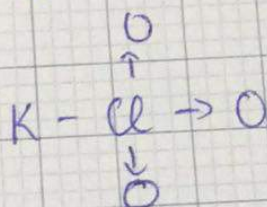 O
↑
K - Cl → O
↓
O